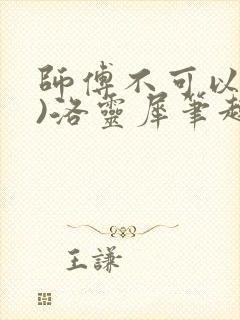 師傅不可以
)洛靈犀筆趣
王謙